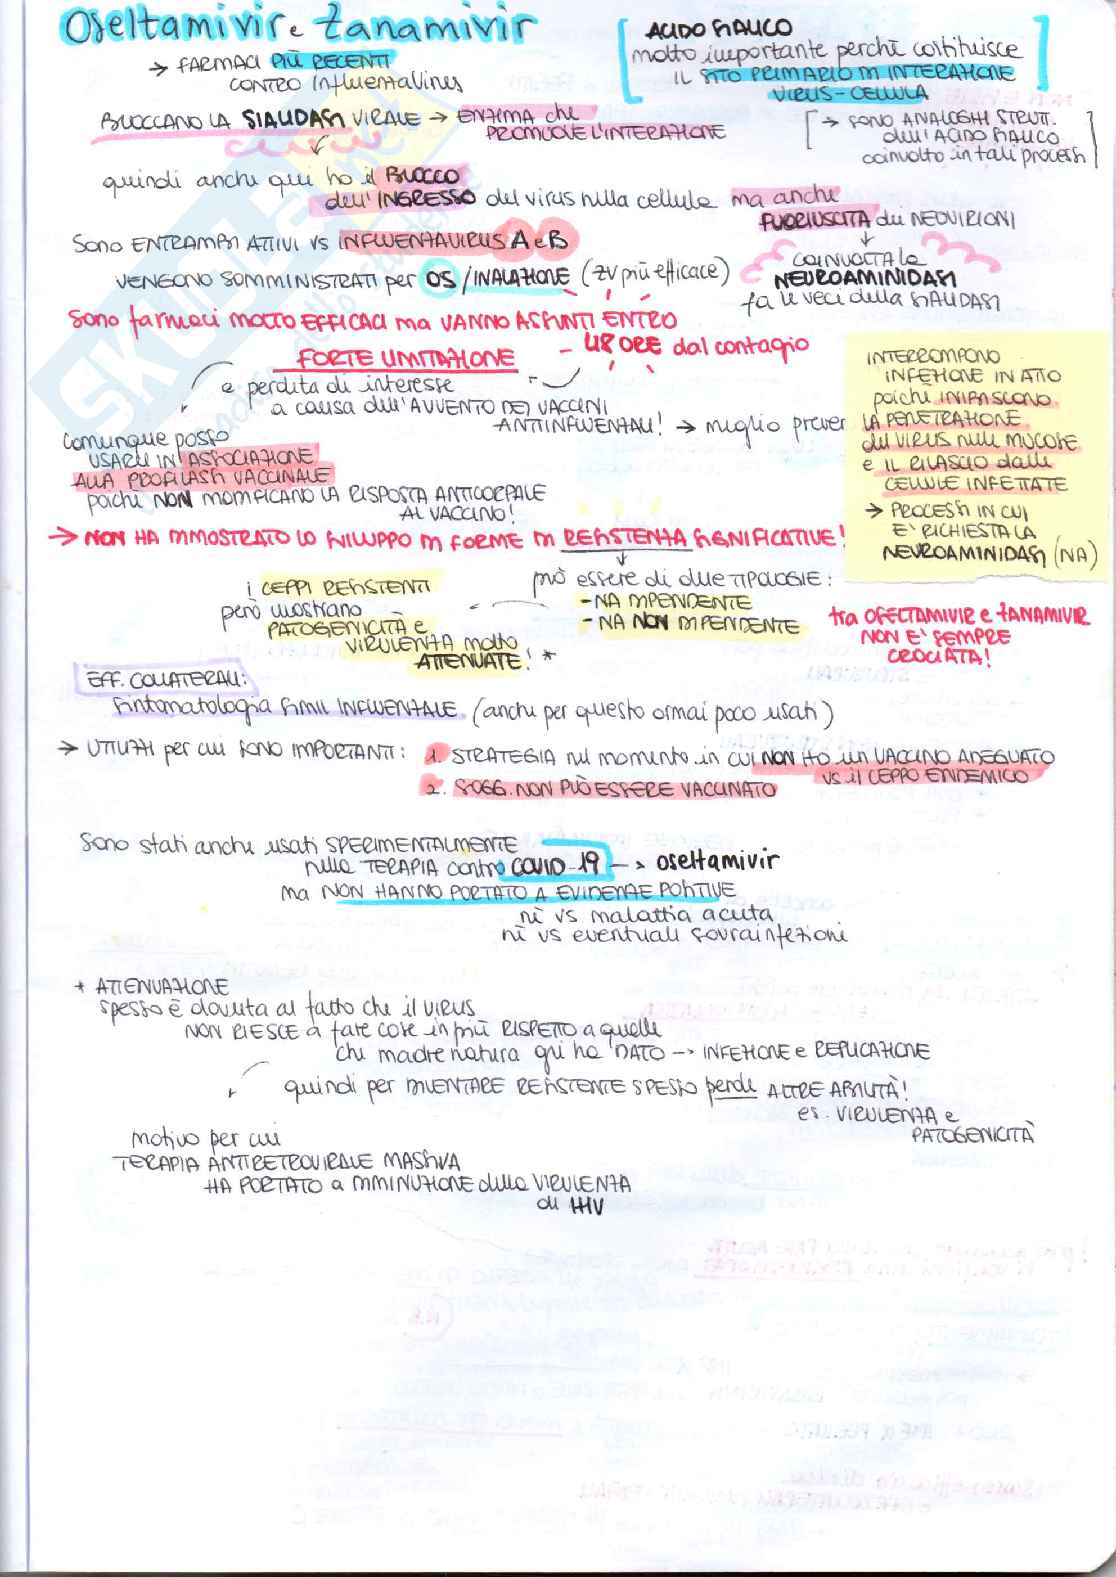 Oseltamivir e Zanamivir
→ FARMACI PIÙ RECENTI
CONTRO InfluentaVirus
[ACIDO SIALICO
molto importante perchè costituisce
IL SITO PRIMARIO DI INTERAZIONE
VIRUS-CELLULA]
BLOCCANO LA SIALIDASI VIRALE → ENZIMA che
PROMUOVE L'INTERAZIONE
[→ SONO ANALOGHI STRUTT.
dell'ACIDO SIALICO
coinvolto in tali processi]
quindi anche qui ho il BLOCCO
dell'INGRESSO del virus nella cellula ma anche
FUORIUSCITA dei NEOVIRIONI
↓
COINVOLTA la
NEUROAMINIDASI
fa le veci della SIALIDASI
Sono ENTRAMBI ATTIVI VS INFLUENTAVIRUS A e B
VENGONO SOMMINISTRATI per OS/INALAZIONE (ZV più efficace)
Sono farmaci MOLTO EFFICACI ma VANNO ASSUNTI ENTRO
48 ORE dal contagio
FORTE LIMITAZIONE
e perdita di interesse
a causa dell'AVVENTO DEI VACCINI
ANTINFLUENZALI! → meglio prever
INTERROMPONO
INFEZIONE IN ATTO
poichè INIBISCONO
LA PENETRAZIONE
del VIRUS nelle MUCOSE
e IL RILASCIO dalle
CELLULE INFETTATE
→ PROCESSI IN CUI
E' RICHIESTA LA
NEUROAMINIDASI (NA)
Comunque posso
USARLI IN ASSOCIAZIONE
ALLA PROFILASSI VACCINALE
poichè NON MODIFICANO LA RISPOSTA ANTICORPALE
AL VACCINO!
→ NON HA DIMOSTRATO LO SVILUPPO DI FORME DI RESISTENZA SIGNIFICATIVE!
↓
può essere di due TIPOLOGIE:
- NA DIPENDENTE
- NA NON DIPENDENTE
i CEPPI RESISTENTI
però mostrano
PATOGENICITÀ e
VIRULENZA molto
ATTENUATE! *
tra OSELTAMIVIR e ZANAMIVIR
NON E' SEMPRE
CROCIATA!
EFF. COLLATERALI:
Sintomatologia SIMIL INFLUENZALE (anche per questo ormai poco usati)
→ UTILIZZI per cui SONO IMPORTANTI:
1. STRATEGIA nel momento in CUI NON HO un VACCINO ADEGUATO
VS il CEPPO ENDEMICO
2. SOGG. NON PUÒ ESSERE VACCINATO
Sono stati anche usati SPERIMENTALMENTE
nella TERAPIA contro COVID-19 → oseltamivir
ma NON HANNO PORTATO A EVIDENZE POSITIVE
nè vs malattia acuta
nè vs eventuali sovrainfezioni
* ATTENUAZIONE
spesso è dovuta al fatto che il VIRUS
NON RIESCE a fare cose in più RISPETTO a quelle
che madre natura gli ha DATO → INFEZIONE e REPLICAZIONE
quindi per DIVENTARE RESISTENTE SPESSO perde ALTRE ABILITÀ!
es. VIRULENZA e
PATOGENICITÀ
motivo per cui
TERAPIA ANTIRETROVIRALE MASSIVA
HA PORTATO a DIMINUZIONE della VIRULENZA
di HIV